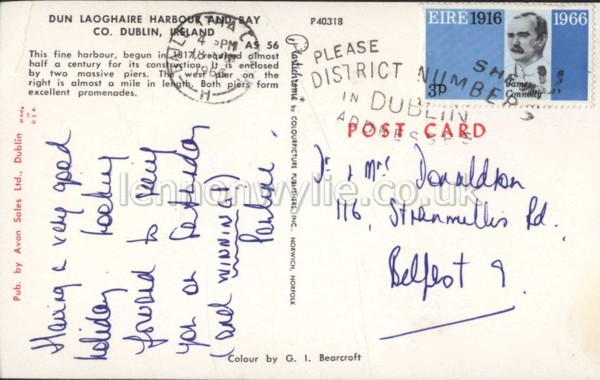 DUN LAOGHAIRE HARBOUR AND BAY
CO. DUBLIN, IRELAND
P40318
AS 56
This fine harbour, begun in 1817, required almost
half a century for its construction. It is enclosed
by two massive piers. The west pier on the
right is almost a mile in length. Both piers form
excellent promenades.
4 PM
1966
PLEASE
DISTRICT NUMBER
IN DUBLIN
ADDRESSES
EIRE 1916 1966
3p
James
Connolly
POST CARD
Having a very good
holiday. Looking
forward to
you on Saturday
(and WINNING!)
Dr & Mrs Donaldson
116, Stranmillis Rd.
Belfast 9.
Plastichrome ® by COLOURPICTURE PUBLISHERS, INC., NORWICH, NORFOLK
Pub. by Avon Sales Ltd., Dublin
MADE U.S.A.
Colour by G. I. Bearcroft
lennonwylie.co.uk